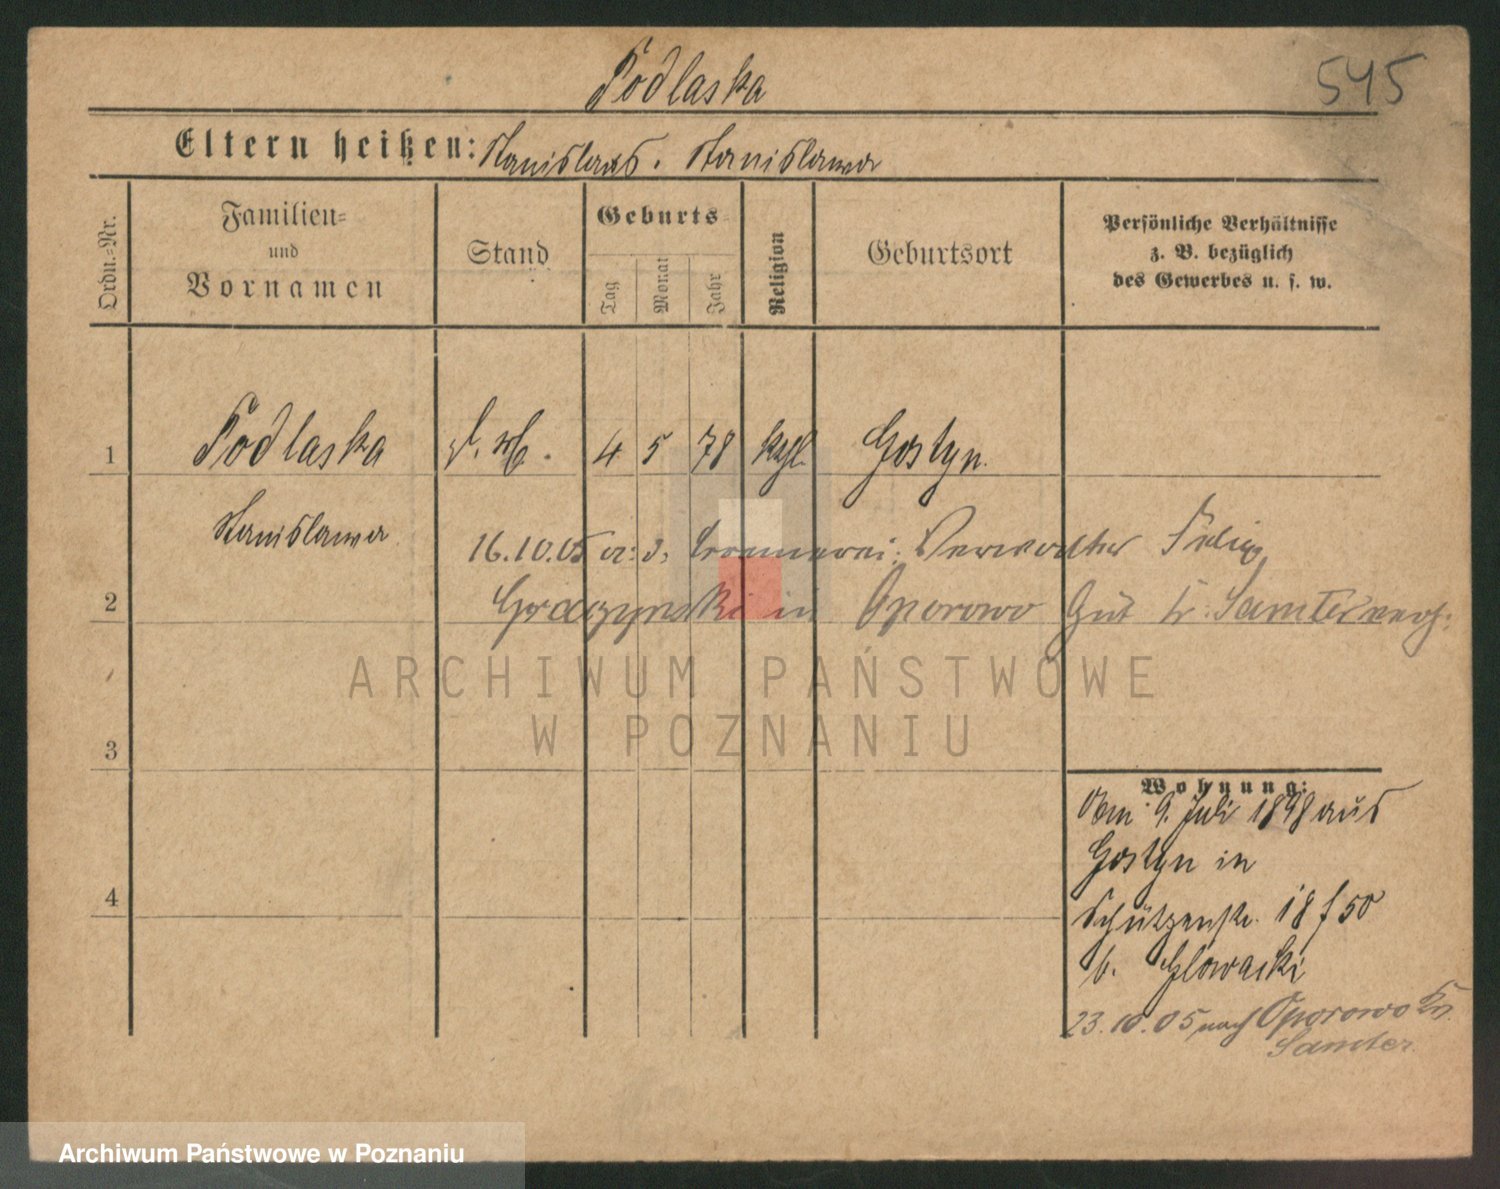 Podlaska
545
Eltern heißen: Stanislaus. Stanislawa
Ordn.-Nr.
Familien-
und
Vornamen
Stand
Geburts
Tag
Monat
Jahr
Religion
Geburtsort
Persönliche Verhältnisse
z. B. bezüglich
des Gewerbes u. s. w.
1 Podlaska 4 5 78 Gostyn.
Stanislawa
16.10.05 Verwalter
2 in Oporowo Gut Kr. Samter
3
4
Wohnung:
Am 9. Juli 1898 aus
Gostyn in
Schützenstr. 18
b. Glowacki
23.10.05 nach Oporowo Kr.
Samter.
ARCHIWUM PAŃSTWOWE
W POZNANIU
Archiwum Państwowe w Poznaniu